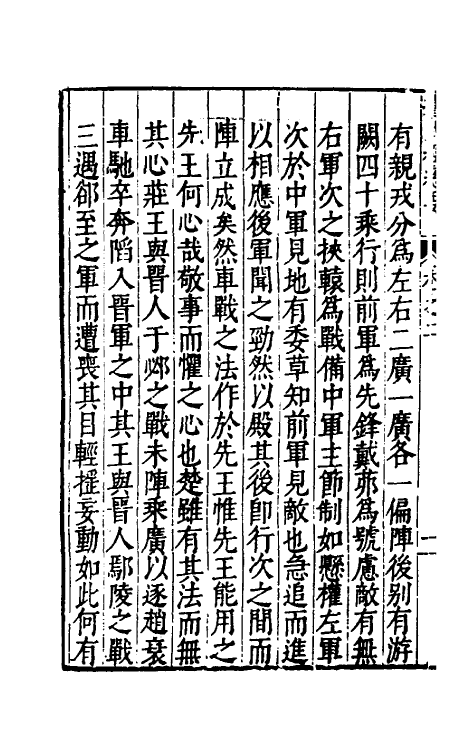 有親戎分為左右二廣一廣各一偏陣後別有游
闕四十乘行則前軍為先鋒戴茆為號慮敵有無
右軍次之挾轅為戰備中軍主節制如懸權左軍
次於中軍見地有委草知前軍見敵也急追而進
以相應後軍聞之勁然以殿其後卽行次之間而
陣立成矣然車戰之法作於先王惟先王能用之
先王何心哉敬事而懼之心也楚雖有其法而無
其心莊王與晉人于邲之戰未陣乘廣以逐趙衰
車馳卒奔䧟入晉軍之中其王與晉人鄢陵之戰
三遇郤至之軍而遭喪其目輕揺妄動如此何有